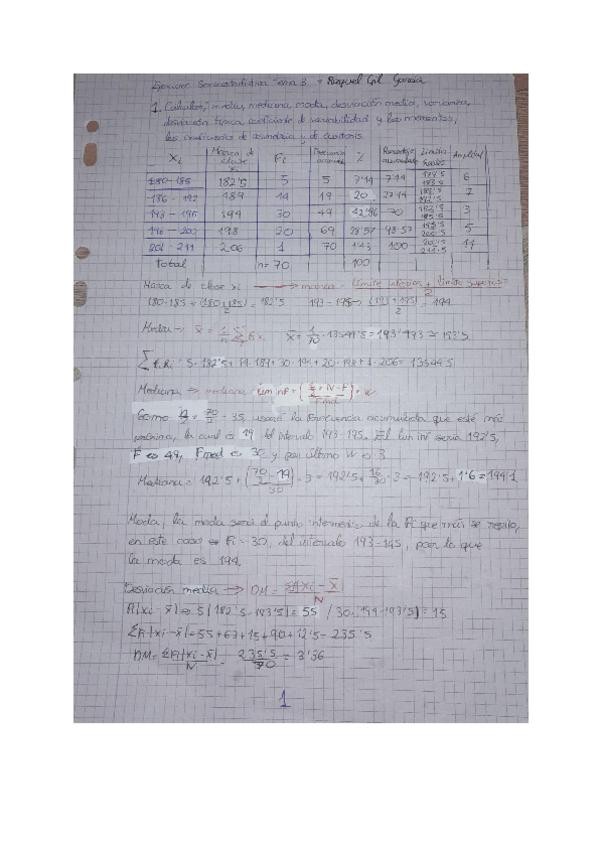 Ejercicios Bioestadística Tema 3 Raquel Gil García
1. Calcular, media, mediana, moda, desviación media, varianza,
desviación típica, coeficiente de variabilidad y los momentos,
los coeficientes de asimetría y de curtosis.
Xi Marca de clase xi Fi Frecuencia % Porcentaje acumulado Límites Amplitud
180-185 182'5 5 5 7'14 7'14 6
186-192 189 14 19 20 27'14 7
193-195 194 30 49 42'86 70 3
196-200 198 20 69 28'57 98'57 5
201-211 206 1 70 1'43 100 11
Total n=70 100
Marca de clase xi → marca = (Límite inferior + límite superior)/2
180-185 = (180+185)/2 = 182'5 193-195 → (193+195)/2 = 194
Media → x̄ = 1/n Σ fi xi x̄ = 1/70 · 13544'5 = 193'493 ≃ 193'5
Σ fi xi = 5·182'5 + 14·189 + 30·194 + 20·198 + 1·206 = 13544'5
Mediana → mediana = Lim inf +
Como n/2 = 70/2 = 35, usaré la frecuencia acumulada que esté más
próxima, la cual es 49 del intervalo 193-195. El lim inf sería 192'5,
F es 49, Fmed es 30 y por último W es 3
Mediana = 192'5 + (70/2 - 19)/30 · 3 = 192'5 + 16/30 · 3 = 192'5 + 1'6 = 194'1
Moda, la moda será el punto intermedio de la Fi que más se repita,
en este caso es Fi = 30, del intervalo 193-195, por lo que
la moda es 194.
Desviación media → DM = ΣFi|xi - x̄|/N
Fi|xi - x̄| ⇒ 5|182'5 - 193'5| = 55 / 30·|194-193'5| = 15
ΣFi|xi - x̄| = 55+63+15+90+12'5 = 235'5
DM = ΣFi|xi - x̄|/N = 235'5/70 = 3'36
1